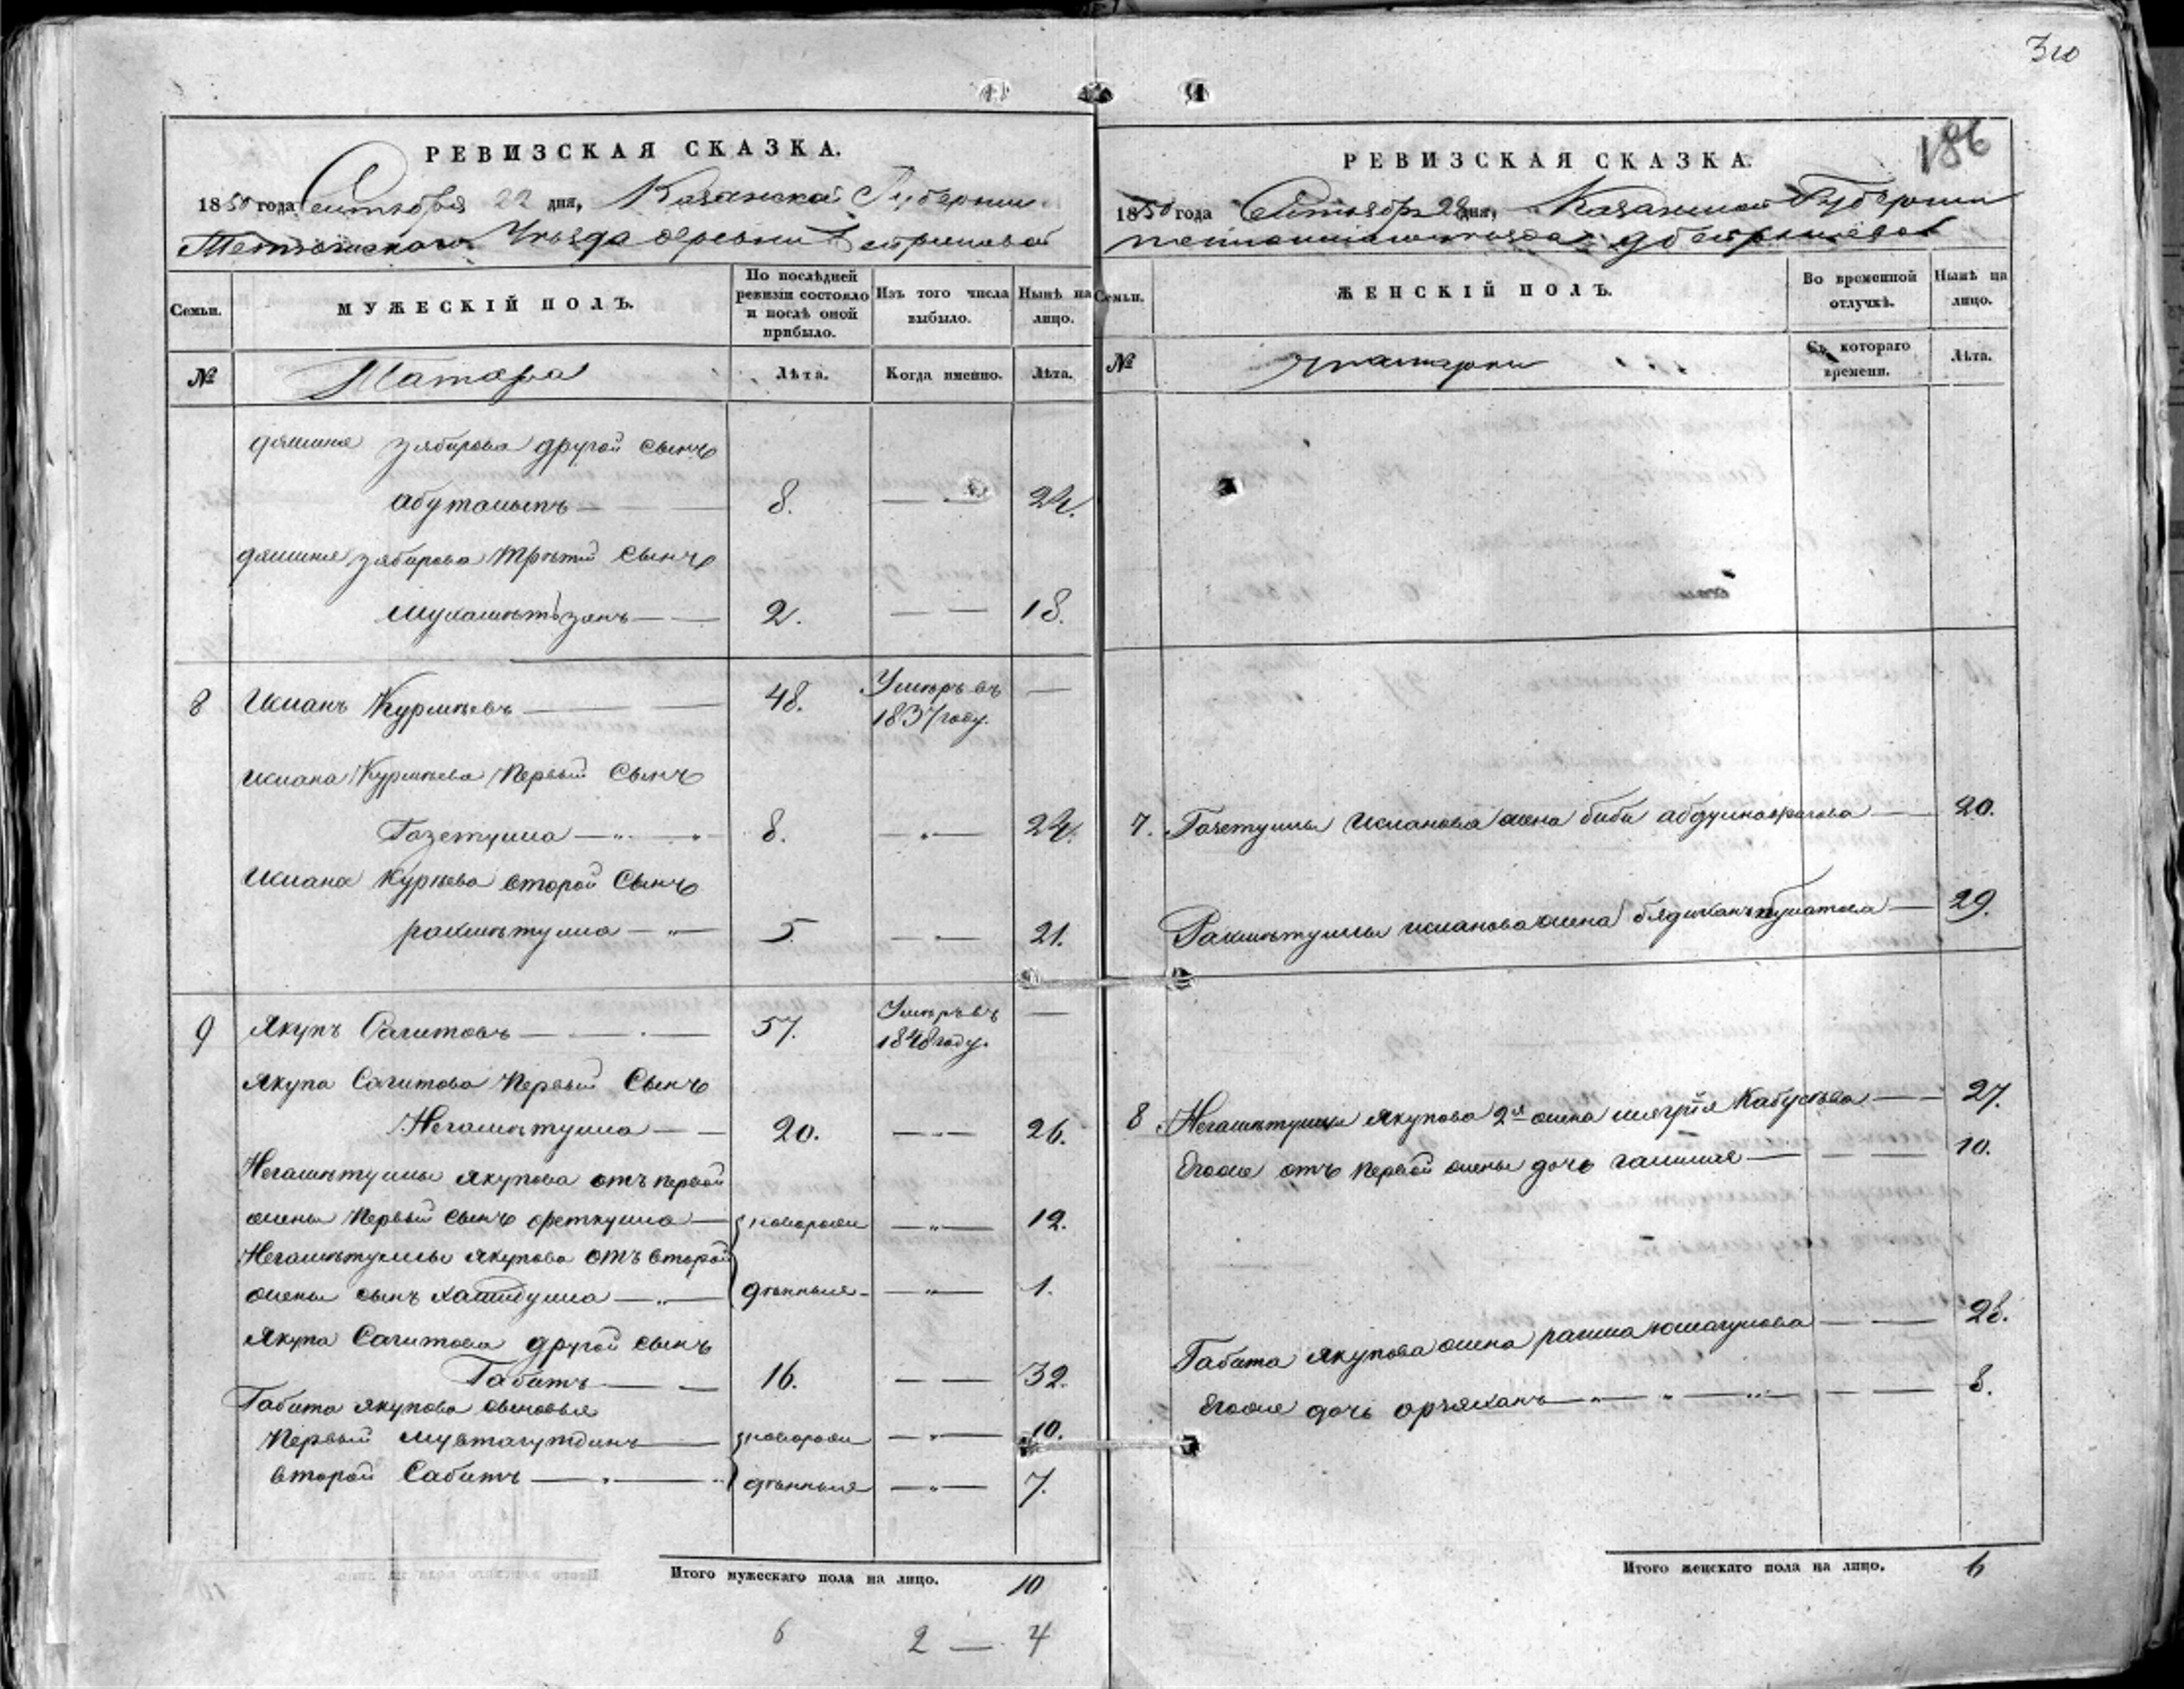 310
186
РЕВИЗСКАЯ СКАЗКА.
1850 года Сентября 22 дня, Казанской Губернии
Тетюшскаго Уезда деревни
Семьи.
МУЖЕСКІЙ ПОЛЪ.
По послѣдней ревизіи состояло и послѣ оной прибыло.
Изъ того числа выбыло.
Нынѣ на лицо.
№
Татара
Лѣта.
Когда именно.
Лѣта.
зябирова другой сынъ
8. — — 24.
зябирова третій сынъ
2. — — 18.
8 Исманъ Курмѣевъ — 48. Умѣръ въ 1837 году. —
Исмана Курмѣева Первый Сынъ
Газетулла — 8. — 24.
Исмана Курмева второй Сынъ
рахмѣтулла — 5. — 21.
9 Якупъ Сагитовъ — 57. Умѣръ въ 1848 году. —
Якупа Сагитова Первый Сынъ
Негамѣтулла — 20. — 26.
Негамѣтуллы Якупова отъ первой
жены Первый сынъ феткулла — новорож — 12.
Негамѣтуллы Якупова отъ второй
жены сынъ — дѣнныя — 1.
Якупа Сагитова другой сынъ
Габитъ — 16. — 32.
Габита Якупова сыновья
Первый — новорож — 10.
второй Сабитъ — дѣнныя — 7.
Итого мужескаго пола на лицо. 10
6 2 — 4
РЕВИЗСКАЯ СКАЗКА.
1850 года Сентябр 22 дня, Казанской Губернии
Семьи.
ЖЕНСКІЙ ПОЛЪ.
Во временной отлучкѣ.
Нынѣ на лицо.
№
татарки
Съ котораго времени.
Лѣта.
7. Газетуллы Исманова жена биби — 20.
Рахмѣтуллы исманова жена — 29.
8 Негамѣтуллы Якупова 2я жена — 27.
Егоже отъ первой жены дочь — 10.
Габита Якупова жена — 28.
Егоже дочь — 8.
Итого женскаго пола на лицо. 6